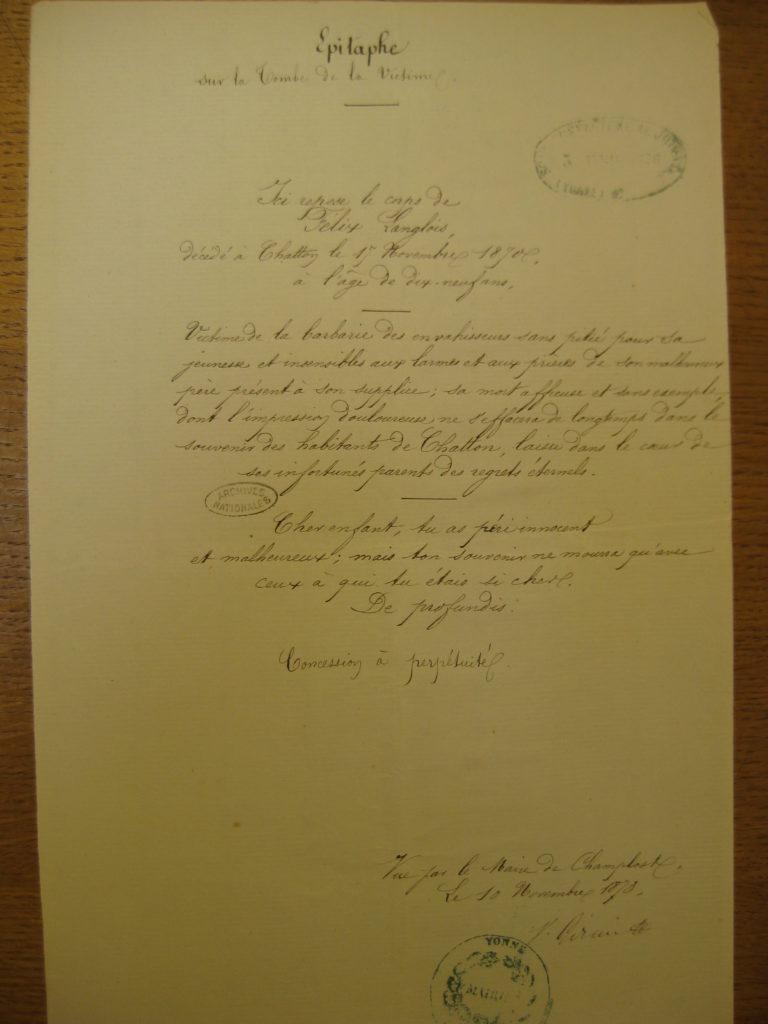 Epitaphe
sur la Tombe de la Victime.
Ici repose le corps de
Félix Langlois,
décédé à Chatton le 17 Novembre 1870,
à l'âge de dix-neuf ans,
Victime de la barbarie des envahisseurs sans pitié pour sa
jeunesse et insensibles aux larmes et aux prières de son malheureux
père présent à son supplice; sa mort affreuse et sans exemple,
dont l'impression douloureuse ne s'effacera de longtemps dans le
souvenir des habitants de Chatton, laisse dans le cœur de
ses infortunés parents des regrets éternels.
ARCHIVES
NATIONALES
Cher enfant, tu as péri innocent
et malheureux; mais ton souvenir ne mourra qu'avec
ceux à qui tu étais si cher.
De profundis.
Concession à perpétuité.
Vu par le Maire de Champlost.
Le 10 Novembre 1873.
YONNE
MAIRIE